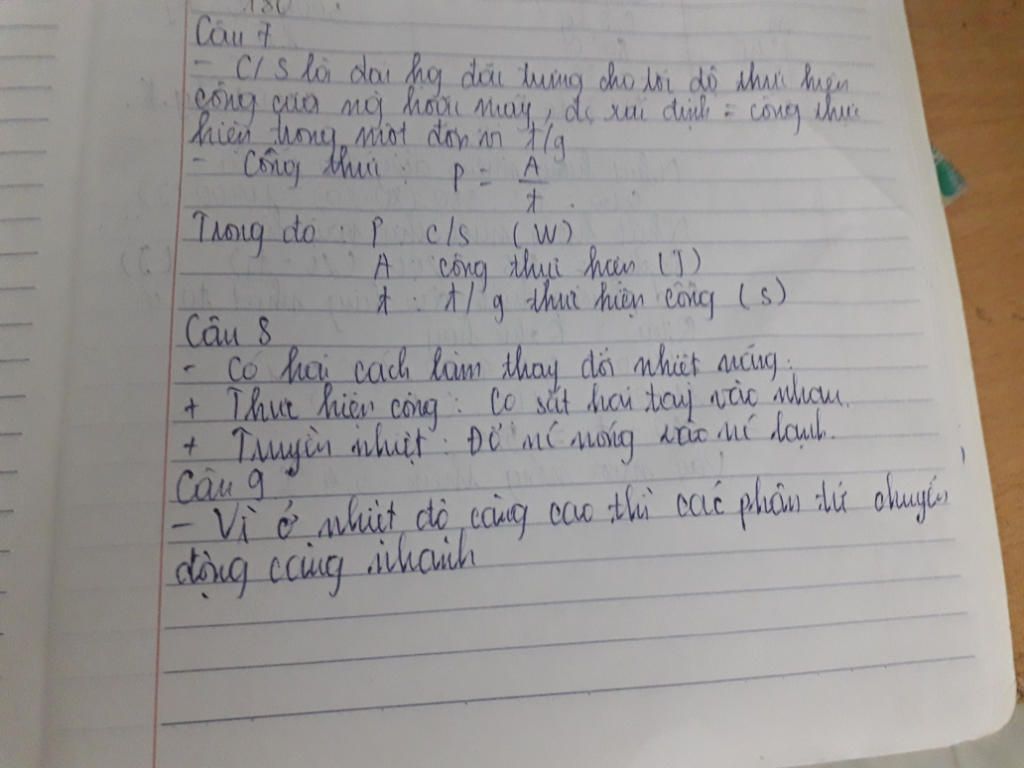 Câu 7
- C/S là đại lg đặc trưng cho tốc độ thực hiện
công của ng hoặc máy, đc xác định = công thực
hiện trong một đơn vị t/g
- Công thức : P = A
t .
Trong đó : P C/S (W)
A công thực hiện (J)
t : t/g thực hiện công (s)
Câu 8
- Có hai cách làm thay đổi nhiệt năng :
+ Thực hiện công : Cọ sát hai tay vào nhau.
+ Truyền nhiệt : Đổ nc nóng vào nc lạnh.
Câu 9
- Vì ở nhiệt độ càng cao thì các phân tử chuyển
động càng nhanh